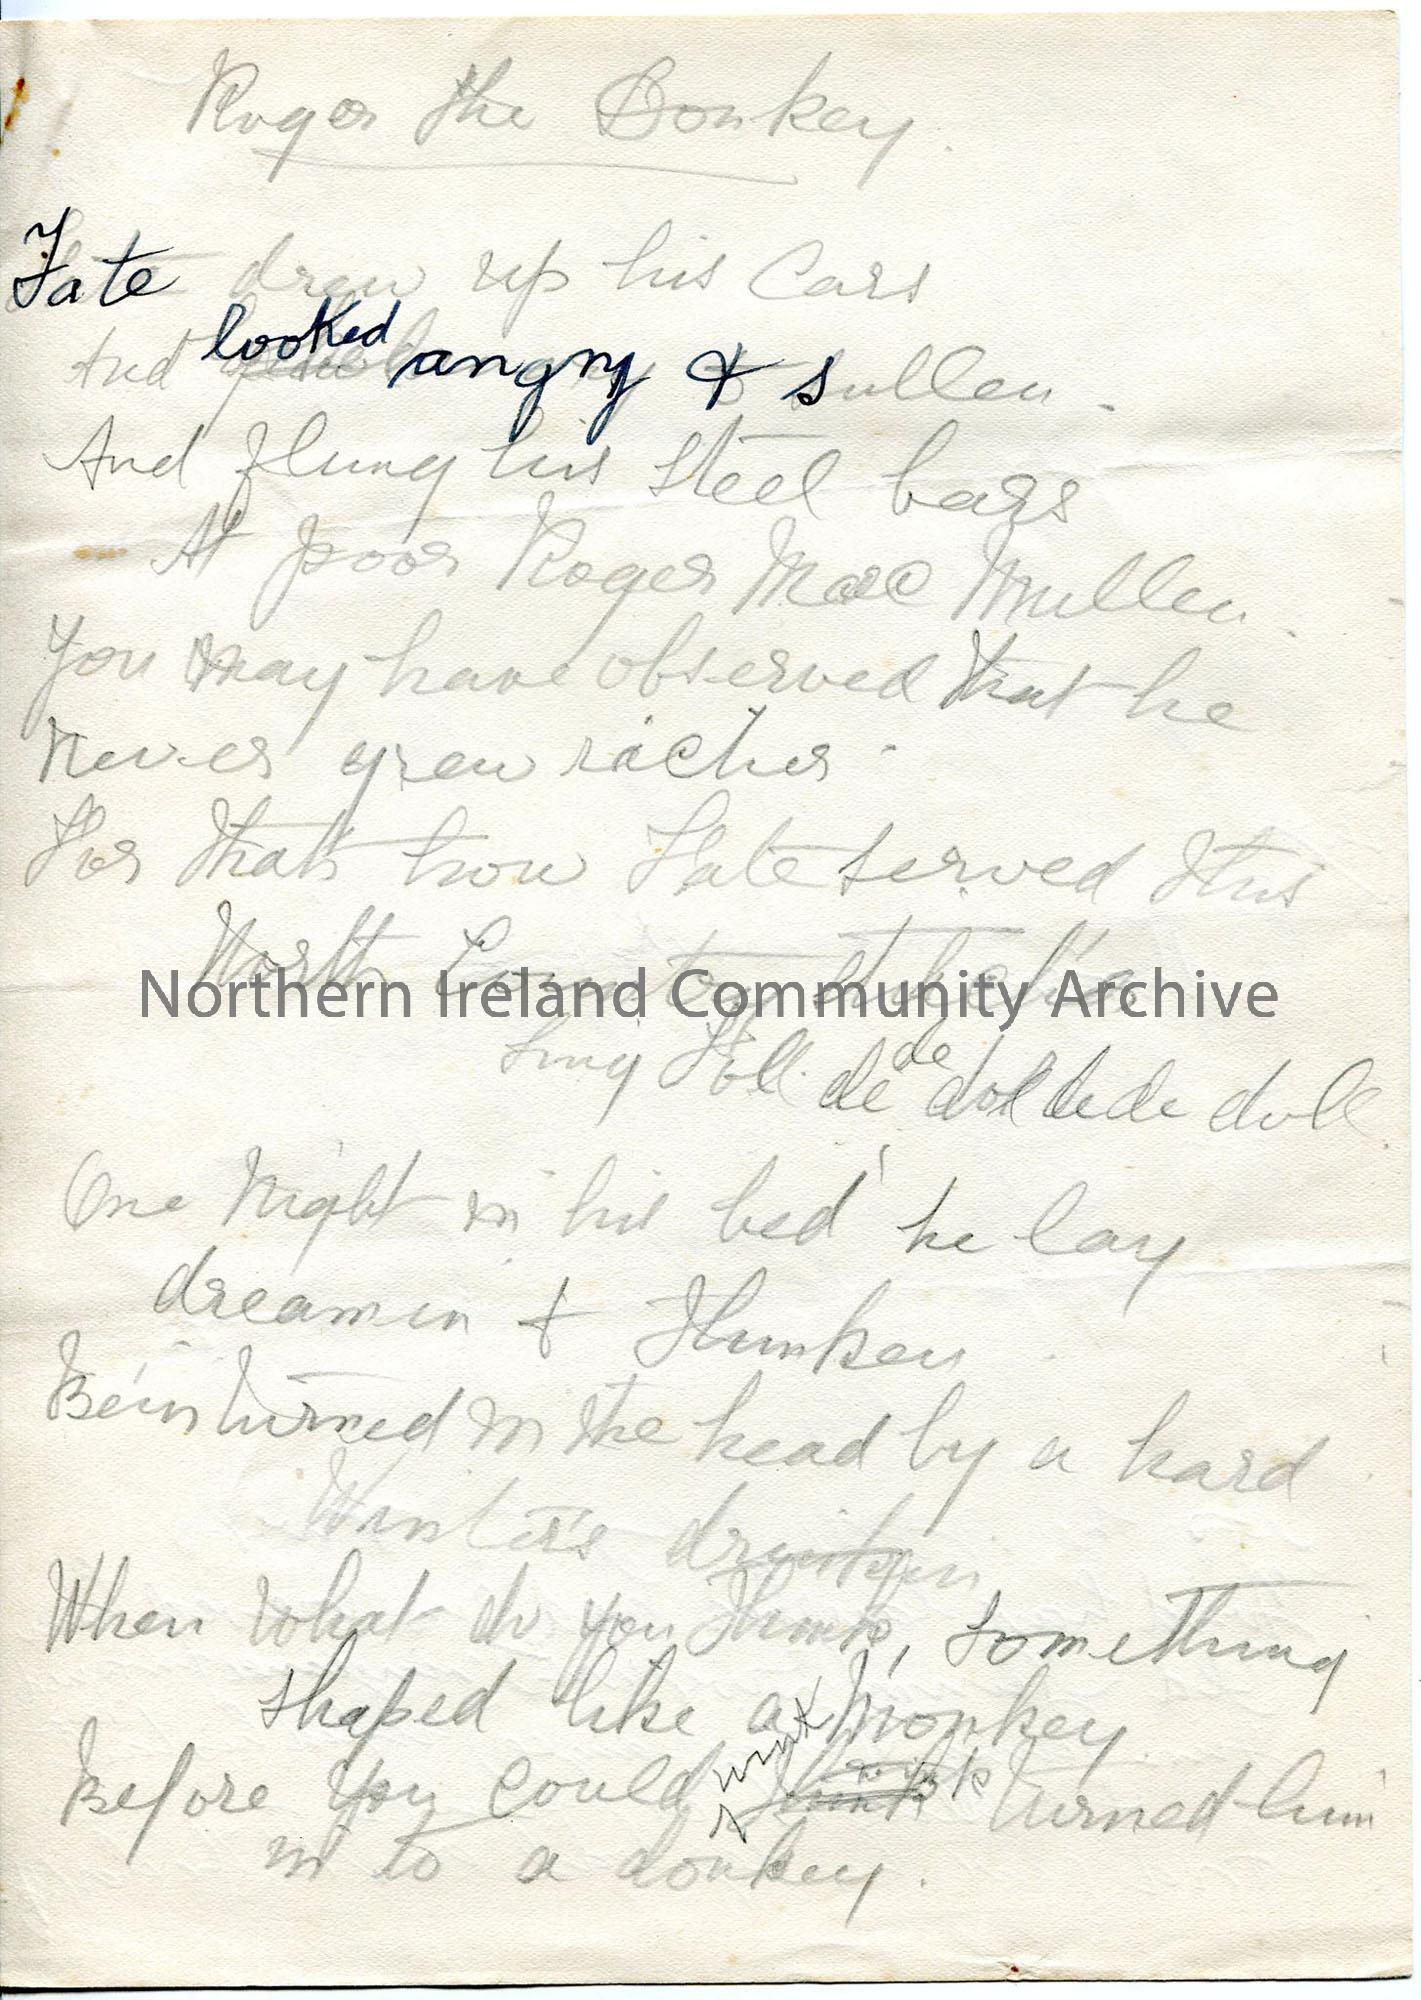 Roger the Donkey.
Fate drew up his Cars
And looked angry & sullen.
And flung his steel bars
At poor Roger Mac Mullen.
You may have observed that he
Never grew richer.
For that's how Fate served this
North Country
Northern Ireland Community Archive
Sing Foll de de dol de de doll.
One Night in his bed he lay
dreamin & thinken
Bein turned in the head by a hard
Winter's drinkin
When what do you think, something
shaped like a monkey
Before you could wink turned him
in to a donkey.